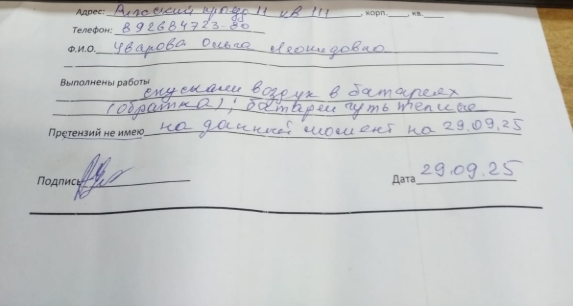 Адрес: Рижский проезд 11 кв 111, корп. кв.
Телефон: 892684723-80
Ф.И.О. Уварова Ольга Леонидовна
Выполнены работы
спускали воздух в батареях
(обратка); батареи чуть теплые
Претензий не имею на данный момент на 29.09.25
Подпись
Дата 29.09.25